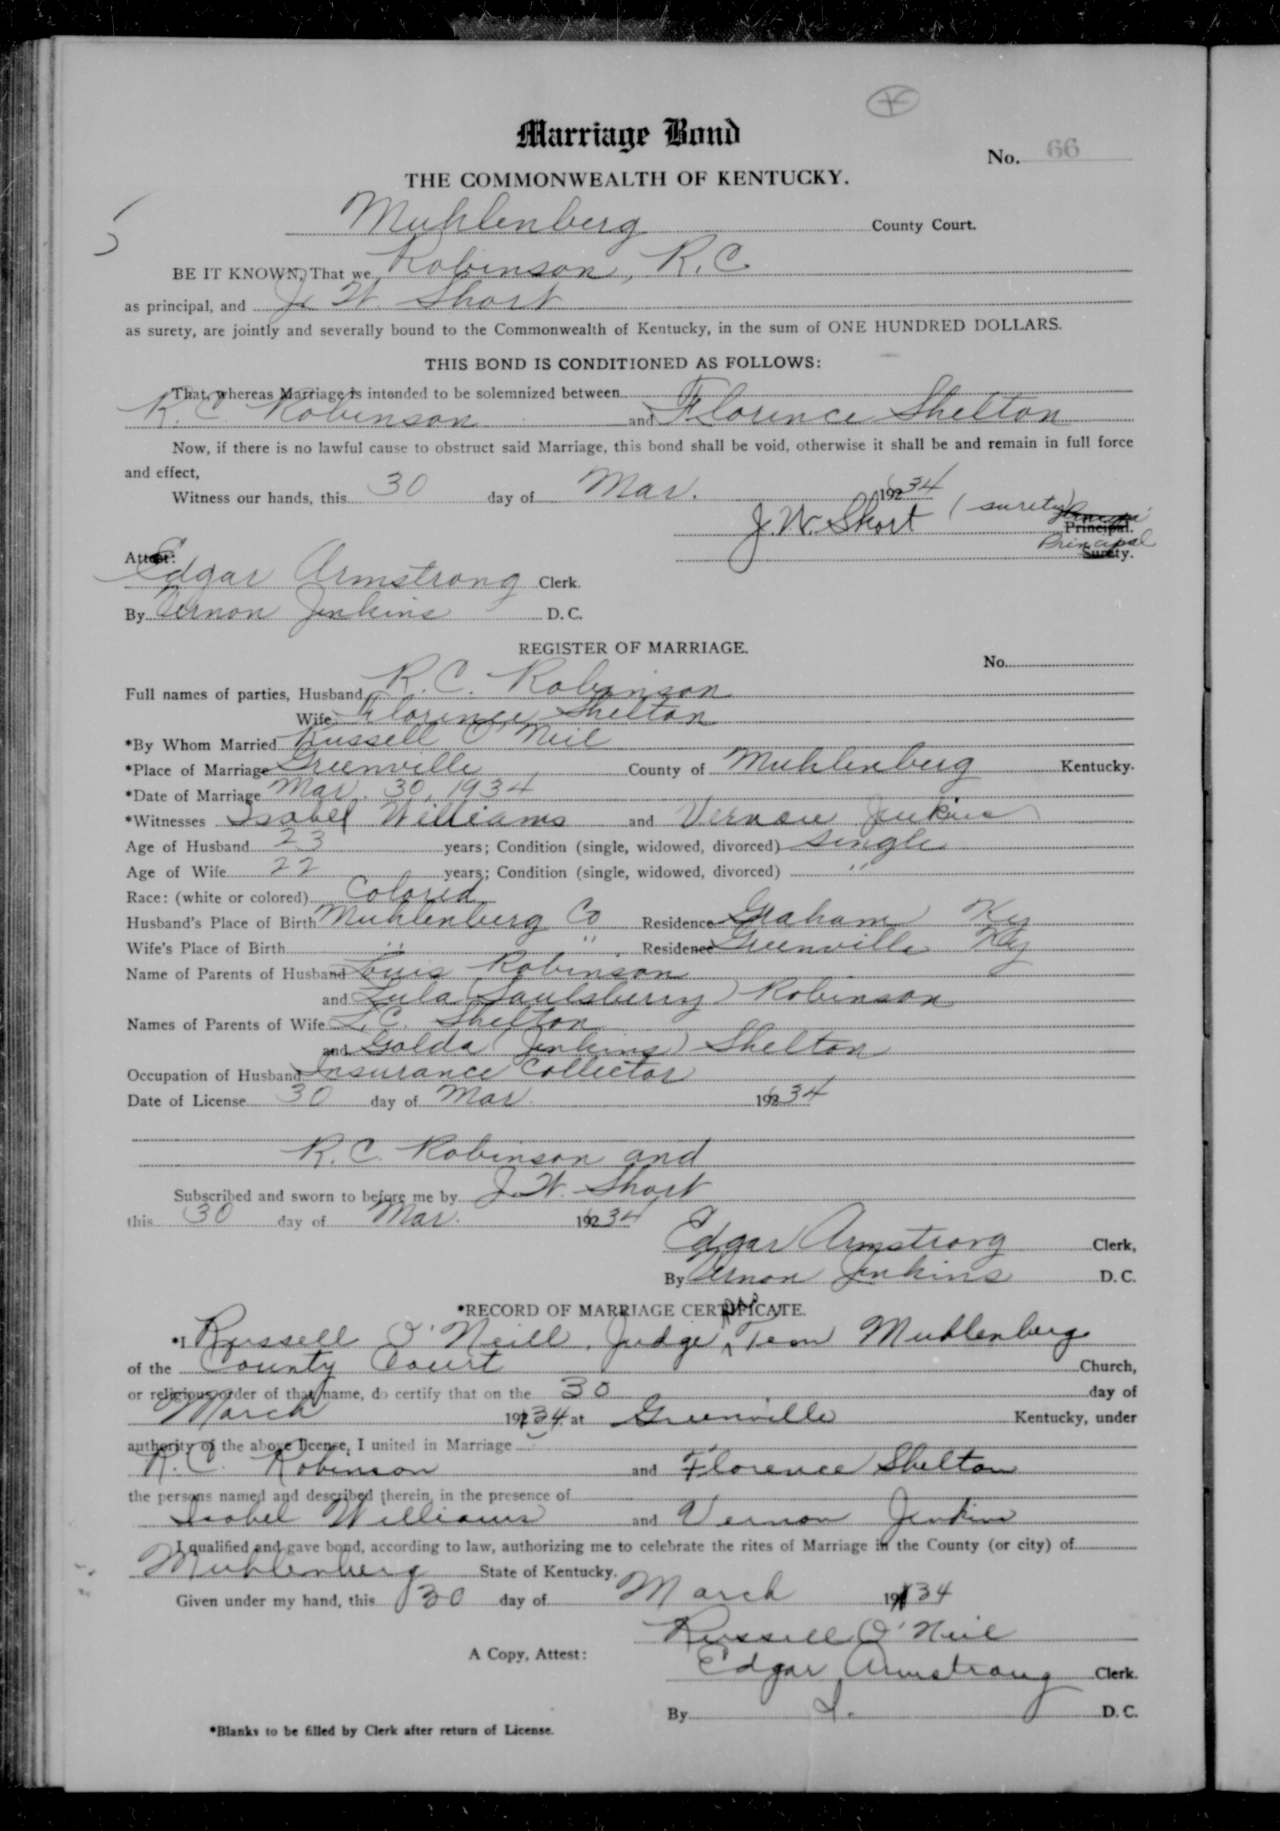 Marriage Bond
No. 66
THE COMMONWEALTH OF KENTUCKY.
Muhlenberg County Court.
BE IT KNOWN, That we Robinson, R.C
as principal, and J. W. Short
as surety, are jointly and severally bound to the Commonwealth of Kentucky, in the sum of ONE HUNDRED DOLLARS.
THIS BOND IS CONDITIONED AS FOLLOWS:
That, whereas Marriage is intended to be solemnized between
R. C. Robinson and Florence Shelton
Now, if there is no lawful cause to obstruct said Marriage, this bond shall be void, otherwise it shall be and remain in full force
and effect,
Witness our hands, this 30 day of Mar. 19234
J. W. Short (surety) Principal.
Principal
Surety.
Attest:
Edgar Armstrong Clerk.
By Vernon Jenkins D. C.
REGISTER OF MARRIAGE.
No.
Full names of parties, Husband R. C. Robinson
Wife Florence Shelton
*By Whom Married Russell O'Neil
*Place of Marriage Greenville County of Muhlenberg Kentucky.
*Date of Marriage Mar. 30, 1934
*Witnesses Isabel Williams and Vernon Jenkins
Age of Husband 23 years; Condition (single, widowed, divorced) single
Age of Wife 22 years; Condition (single, widowed, divorced) "
Race: (white or colored) Colored
Husband's Place of Birth Muhlenberg Co Residence Graham Ky
Wife's Place of Birth " " Residence Greenville Ky
Name of Parents of Husband Louis Robinson
and Lula (Saulsberry) Robinson
Names of Parents of Wife L. C. Shelton
and Golda (Jenkins) Shelton
Occupation of Husband Insurance Collector
Date of License 30 day of Mar. 19234
R. C. Robinson and
Subscribed and sworn to before me by J. W. Short
this 30 day of Mar. 19234
Edgar Armstrong Clerk,
By Vernon Jenkins D. C.
*RECORD OF MARRIAGE CERTIFICATE.
*I Russell O'Neill, Judge Pro Tem Muhlenberg
of the County Court Church,
or religious order of that name, do certify that on the 30 day of
March 1934 at Greenville Kentucky, under
authority of the above license, I united in Marriage
R. C. Robinson and Florence Shelton
the persons named and described therein, in the presence of
Isabel Williams and Vernon Jenkins
I qualified and gave bond, according to law, authorizing me to celebrate the rites of Marriage in the County (or city) of
Muhlenberg State of Kentucky.
Given under my hand, this 30 day of March 1934
Russell O'Neil
A Copy, Attest:
Edgar Armstrong Clerk.
By D. C.
*Blanks to be filled by Clerk after return of License.